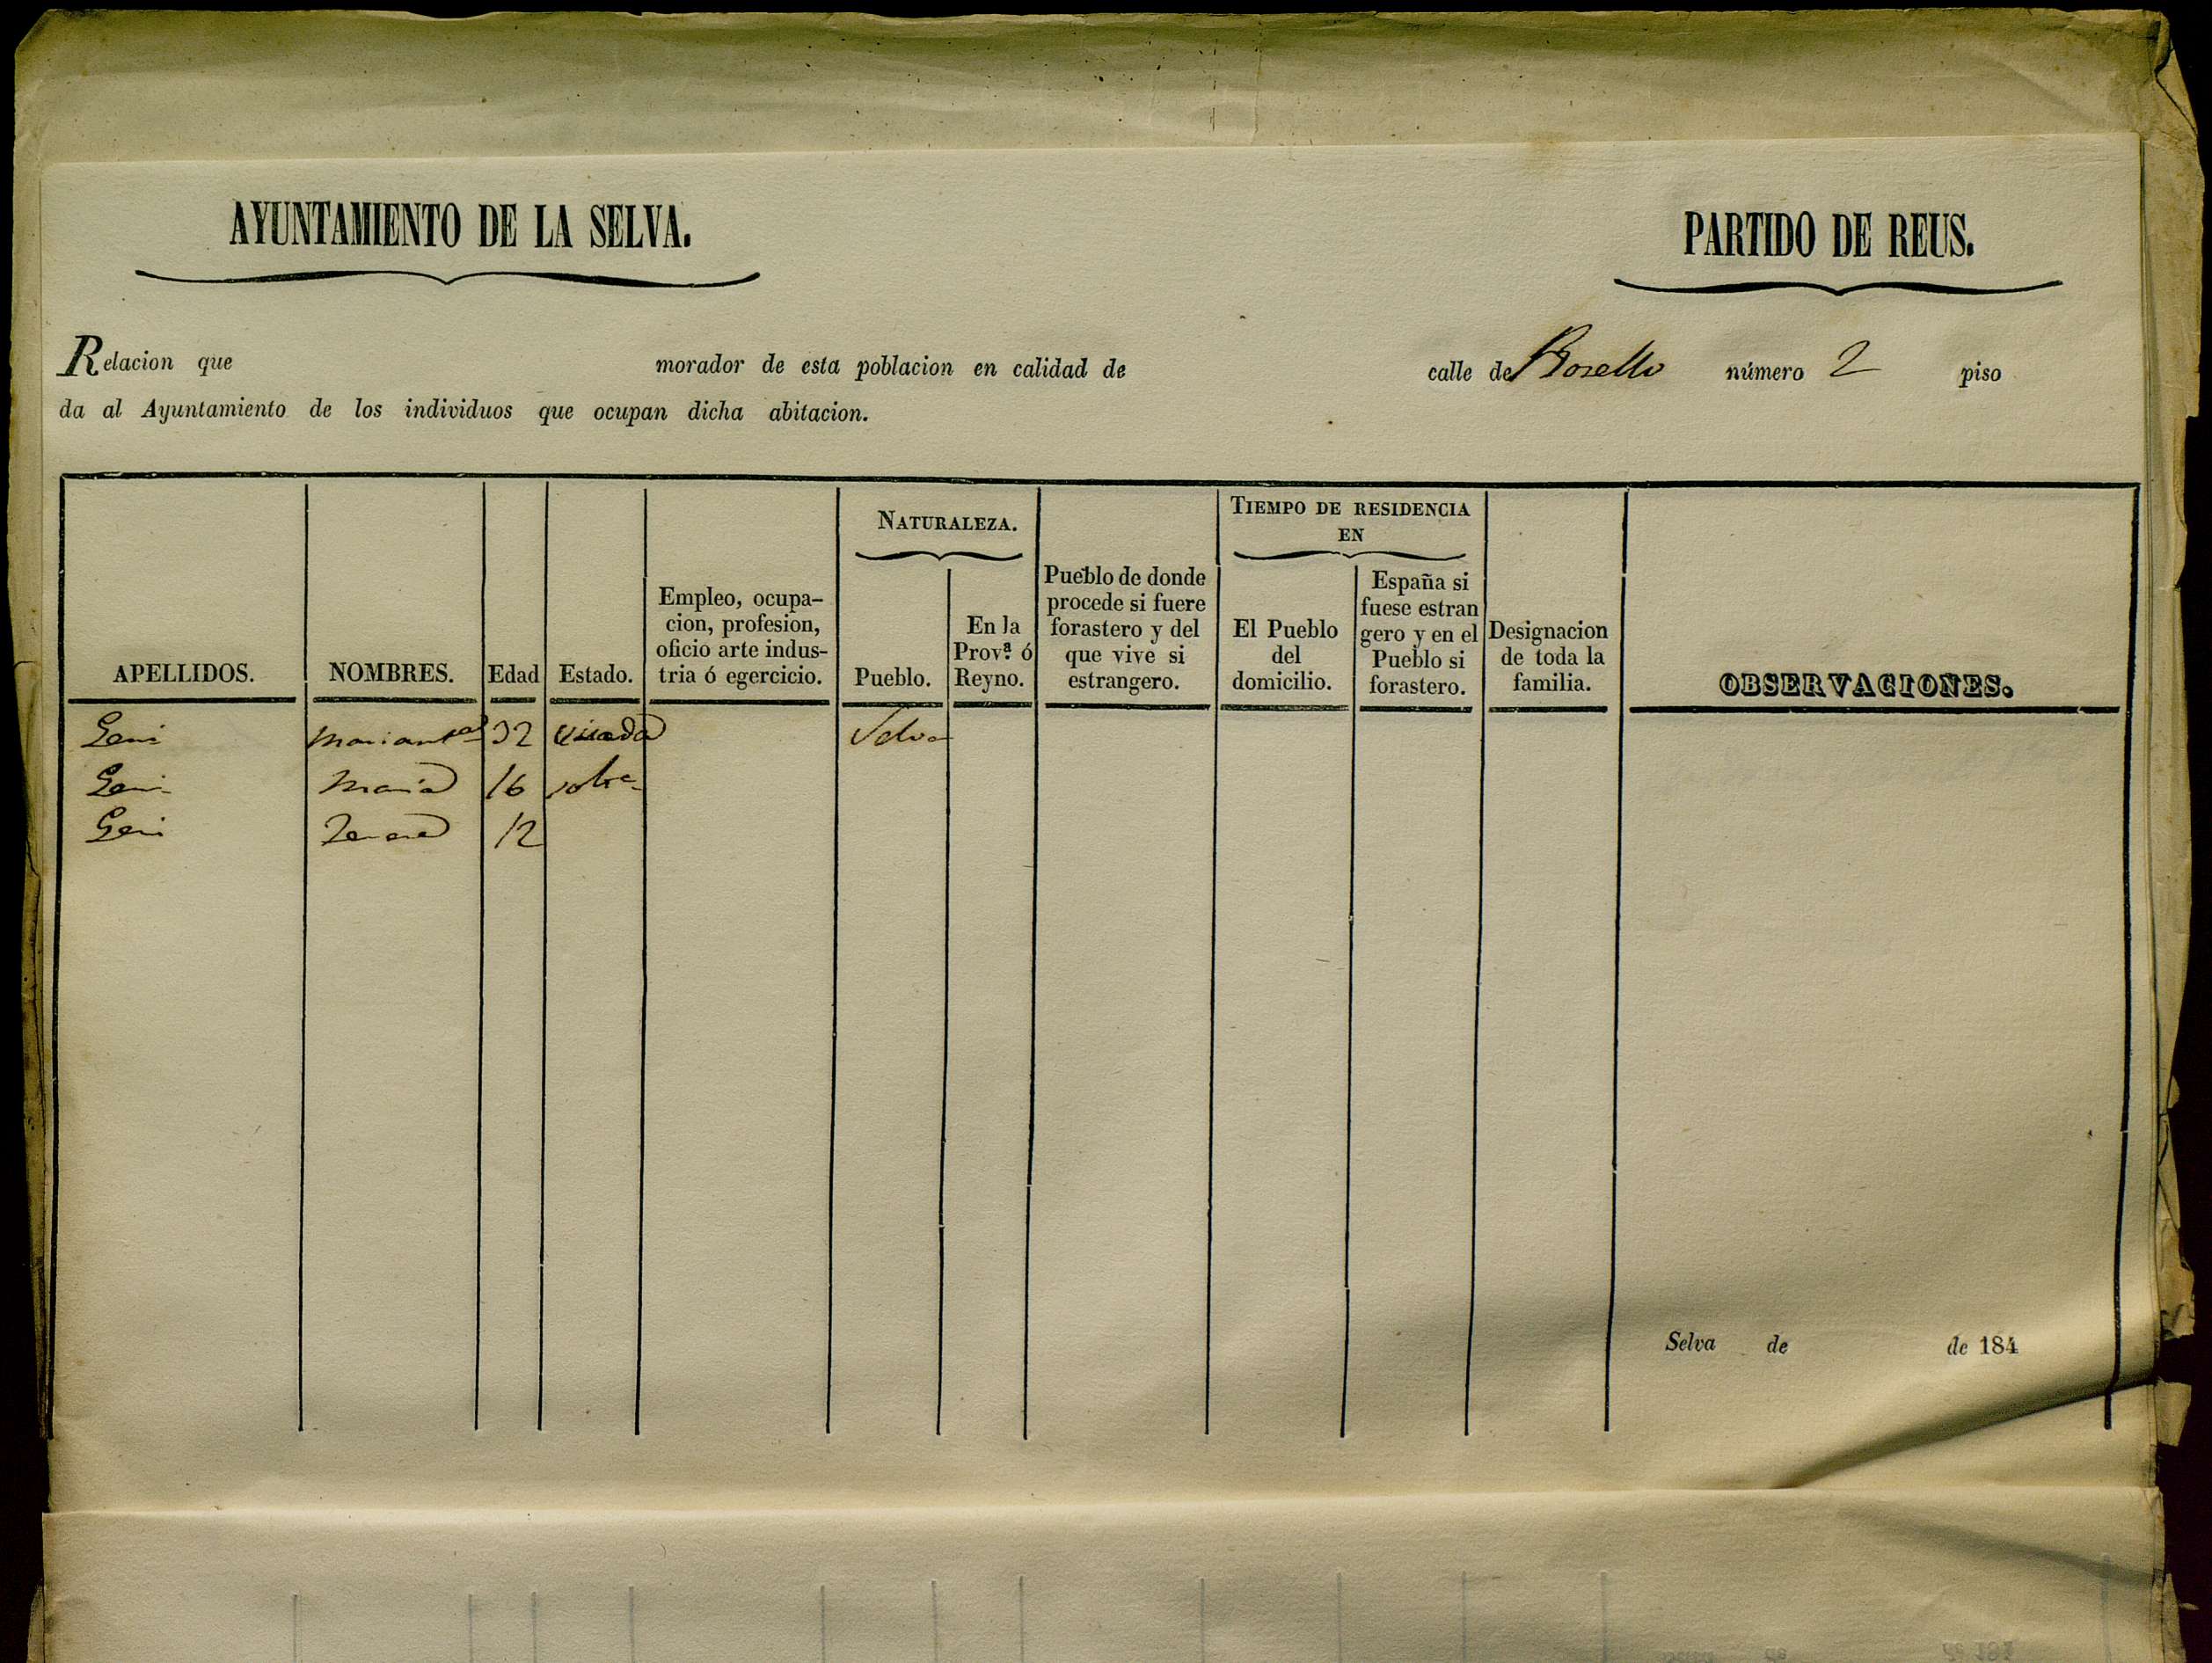 AYUNTAMIENTO DE LA SELVA.
PARTIDO DE REUS.
Relacion que morador de esta poblacion en calidad de calle de número 2 piso
da al Ayuntamiento de los individuos que ocupan dicha abitacion.
APELLIDOS.
NOMBRES.
Edad
Estado.
Empleo, ocupa-
cion, profesion,
oficio arte indus-
tria ó egercicio.
NATURALEZA.
Pueblo.
En la
Prov.ª ó
Reyno.
Pueblo de donde
procede si fuere
forastero y del
que vive si
estrangero.
TIEMPO DE RESIDENCIA
EN
El Pueblo
del
domicilio.
España si
fuese estran
gero y en el
Pueblo si
forastero.
Designacion
de toda la
familia.
OBSERVACIONES.
32 viuda Selva
Maria 16
12
Selva de de 184